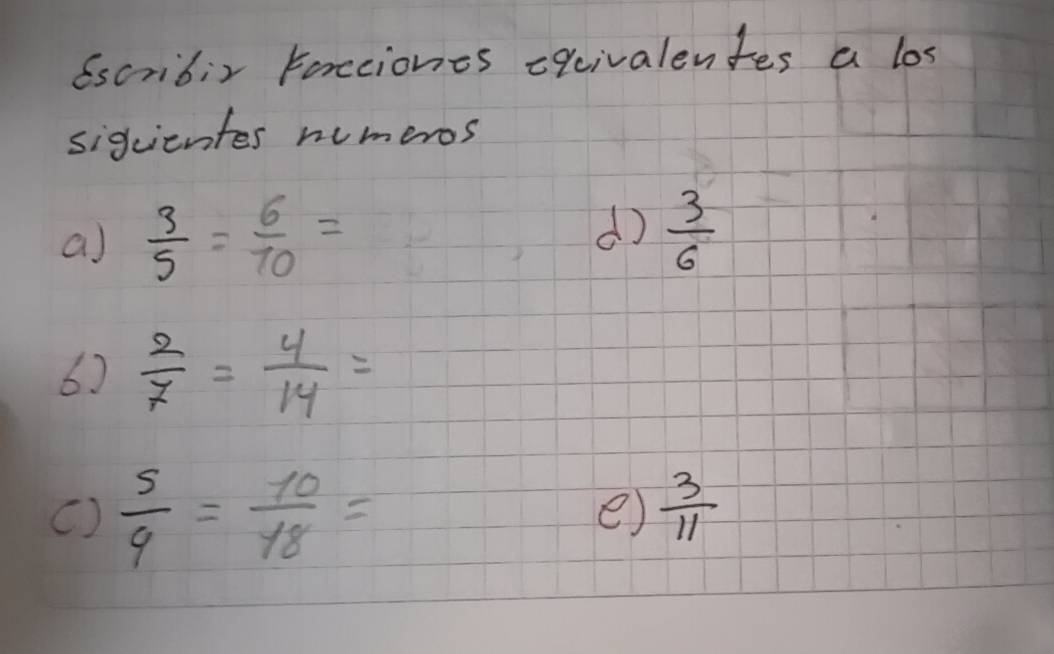 Escribir Fracciones equivalentes a los
siguientes numeros
a) 3/5 = 6/10 =
d) 3/6
b) 2/7 = 4/14 =
c) 5/9 = 10/18 =
e) 3/11